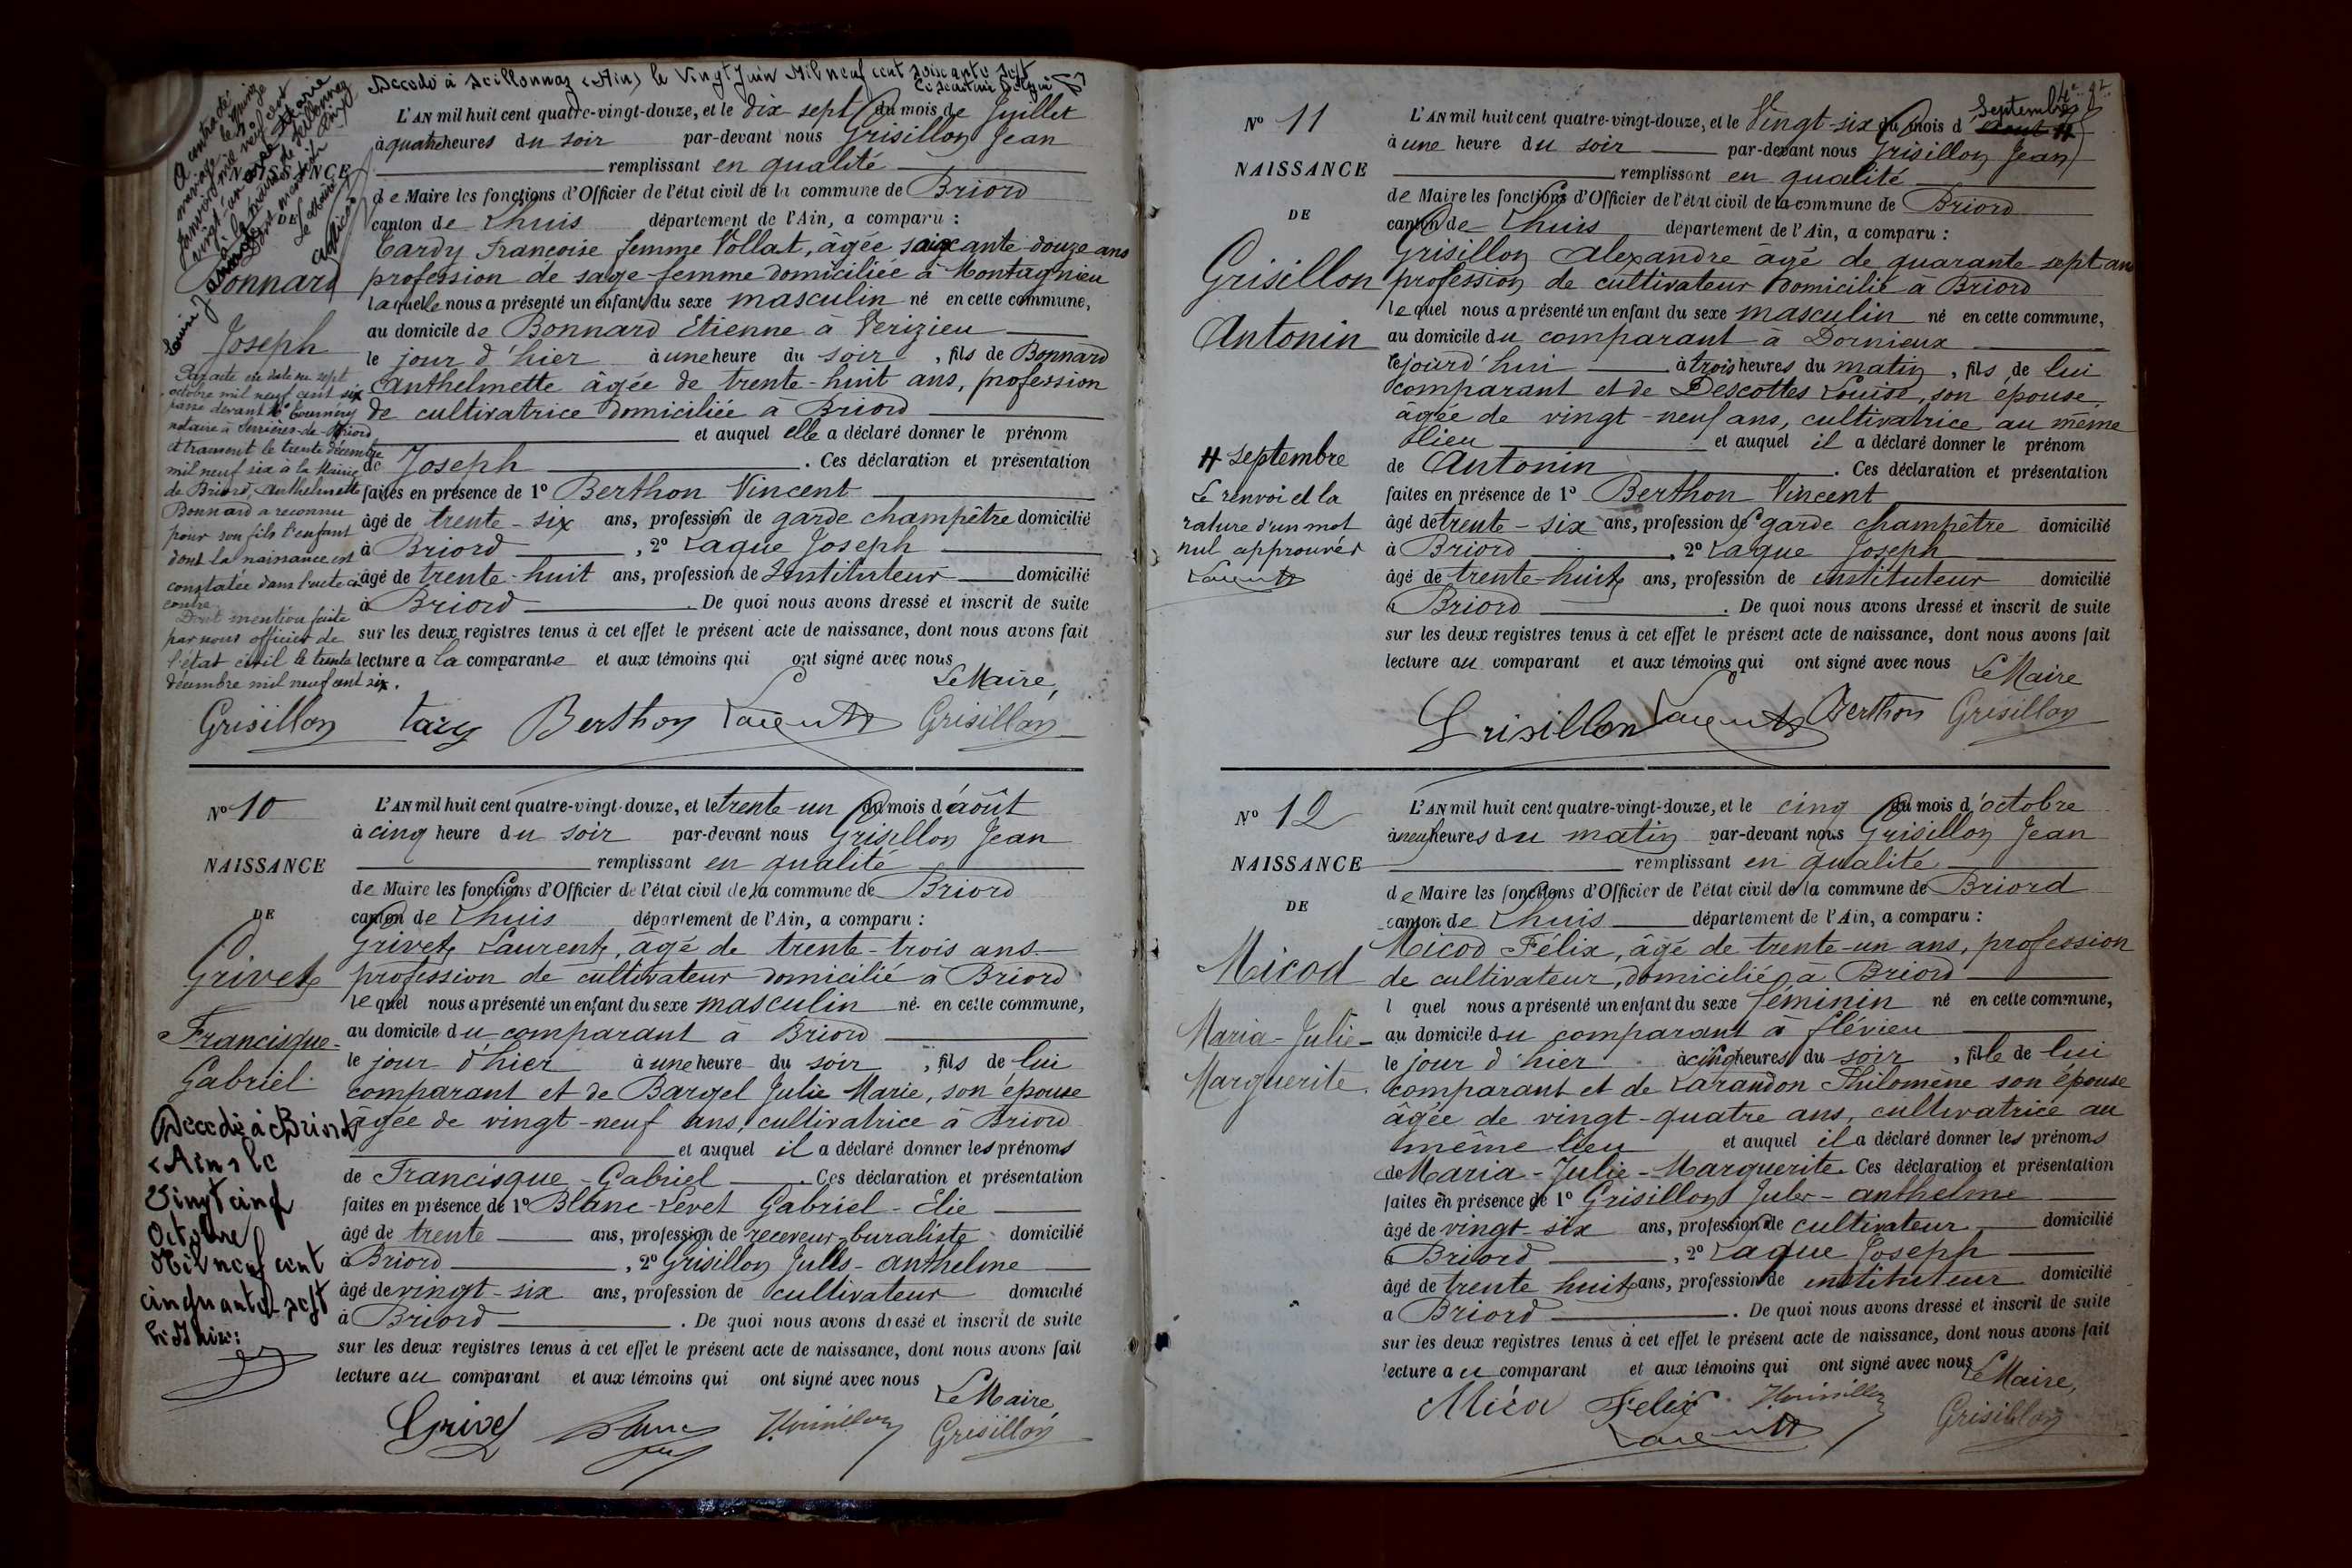 Décédé à Seillonnaz (Ain) le Vingt Juin Mil neuf cent soixante sept
L'AN mil huit cent quatre-vingt-douze, et le dix sept du mois de Juillet
à quatre heures du soir par-devant nous Grisillon Jean
remplissant en qualité
de Maire les fonctions d'Officier de l'état civil de la commune de Briord
canton de Lhuis département de l'Ain, a comparu :
Tardy Francoise femme Vollat, âgée soixante-douze ans
profession de sage-femme domiciliée à Montagnieu
laquelle nous a présenté un enfant du sexe masculin né en cette commune,
au domicile de Bonnard Etienne à Verizieu
le jour d'hier à une heure du soir, fils de Bonnard
Anthelmette âgée de trente-huit ans, profession
de cultivatrice domiciliée à Briord
et auquel elle a déclaré donner le prénom
de Joseph. Ces déclaration et présentation
faites en présence de 1º Berthon Vincent
âgé de trente-six ans, profession de garde champêtre domicilié
à Briord, 2º Laque Joseph
âgé de trente-huit ans, profession de Instituteur domicilié
à Briord. De quoi nous avons dressé et inscrit de suite
sur les deux registres tenus à cet effet le présent acte de naissance, dont nous avons fait
lecture a la comparante et aux témoins qui ont signé avec nous
Le Maire,
Grisillon Berthon Grisillon
NAISSANCE
DE
Bonnard
Joseph
Par acte en date du sept
octobre mil neuf cent six
passé devant Me
notaire à Serrières-de-Briord
et transcrit le trente décembre
mil neuf six à la Mairie
de Briord, Anthelmette
Bonnard a reconnu
pour son fils l'enfant
dont la naissance est
constatée dans l'acte ci
contre.
Dont mention faite
par nous officier de
l'état civil le trente
décembre mil neuf cent six.
Nº 10
NAISSANCE
DE
Grivet
Francisque-
Gabriel
Décédé à Briord
(Ain) le
Vingt cinq
Octobre
Mil neuf cent
cinquante sept
L'AN mil huit cent quatre-vingt-douze, et le trente-un du mois d'août
à cinq heure du soir par-devant nous Grisillon Jean
remplissant en qualité
de Maire les fonctions d'Officier de l'état civil de la commune de Briord
canton de Lhuis département de l'Ain, a comparu :
Grivet Laurent, âgé de trente-trois ans
profession de cultivateur domicilié à Briord
lequel nous a présenté un enfant du sexe masculin né en cette commune,
au domicile du comparant à Briord
le jour d'hier à une heure du soir, fils de lui
comparant et de Bargel Julie Marie, son épouse
âgée de vingt-neuf ans, cultivatrice à Briord
et auquel il a déclaré donner les prénoms
de Francisque-Gabriel. Ces déclaration et présentation
faites en présence de 1º Blanc-Levet Gabriel-Elie
âgé de trente ans, profession de receveur buraliste domicilié
à Briord, 2º Grisillon Jules-anthelme
âgé de vingt-six ans, profession de cultivateur domicilié
à Briord. De quoi nous avons dressé et inscrit de suite
sur les deux registres tenus à cet effet le présent acte de naissance, dont nous avons fait
lecture au comparant et aux témoins qui ont signé avec nous
Le Maire,
Grivet Grisillon
Nº 11
NAISSANCE
DE
Grisillon
Antonin
# Septembre
Le renvoi et la
rature d'un mot
nul approuvés
Septembre
L'AN mil huit cent quatre-vingt-douze, et le Vingt-six du mois d'août #
à une heure du soir par-devant nous Grisillon Jean
remplissant en qualité
de Maire les fonctions d'Officier de l'état civil de la commune de Briord
canton de Lhuis département de l'Ain, a comparu :
Grisillon Alexandre âgé de quarante-sept ans
profession de cultivateur domicilié à Briord
lequel nous a présenté un enfant du sexe masculin né en cette commune,
au domicile du comparant à Dornieux
lejourd'hui à trois heures du matin, fils de lui
comparant et de Descottes Louise, son épouse
âgée de vingt-neuf ans, cultivatrice au même
lieu et auquel il a déclaré donner le prénom
de Antonin. Ces déclaration et présentation
faites en présence de 1º Berthon Vincent
âgé de trente-six ans, profession de garde champêtre domicilié
à Briord, 2º Laque Joseph
âgé de trente-huit ans, profession de instituteur domicilié
à Briord. De quoi nous avons dressé et inscrit de suite
sur les deux registres tenus à cet effet le présent acte de naissance, dont nous avons fait
lecture au comparant et aux témoins qui ont signé avec nous
Le Maire
Grisillon Berthon Grisillon
Nº 12
NAISSANCE
DE
Micod
Maria-Julie-
Marguerite
L'AN mil huit cent quatre-vingt-douze, et le cinq du mois d'octobre
à neuf heures du matin par-devant nous Grisillon Jean
remplissant en qualité
de Maire les fonctions d'Officier de l'état civil de la commune de Briord
canton de Lhuis département de l'Ain, a comparu :
Micod Félix, âgé de trente-un ans, profession
de cultivateur, domicilié a Briord
l quel nous a présenté un enfant du sexe féminin né en cette commune,
au domicile du comparant à flévieu
le jour d'hier à cinq heures du soir, fille de lui
comparant et de Larandon Philomène son épouse
âgée de vingt-quatre ans, cultivatrice au
même lieu et auquel il a déclaré donner les prénoms
de Maria-Julie-Marguerite. Ces déclaration et présentation
faites en présence de 1º Grisillon Jules-anthelme
âgé de vingt-six ans, profession de cultivateur domicilié
à Briord, 2º Laque Joseph
âgé de trente huit ans, profession de instituteur domicilié
a Briord. De quoi nous avons dressé et inscrit de suite
sur les deux registres tenus à cet effet le présent acte de naissance, dont nous avons fait
lecture au comparant et aux témoins qui ont signé avec nous
Le Maire,
Felix Grisillon